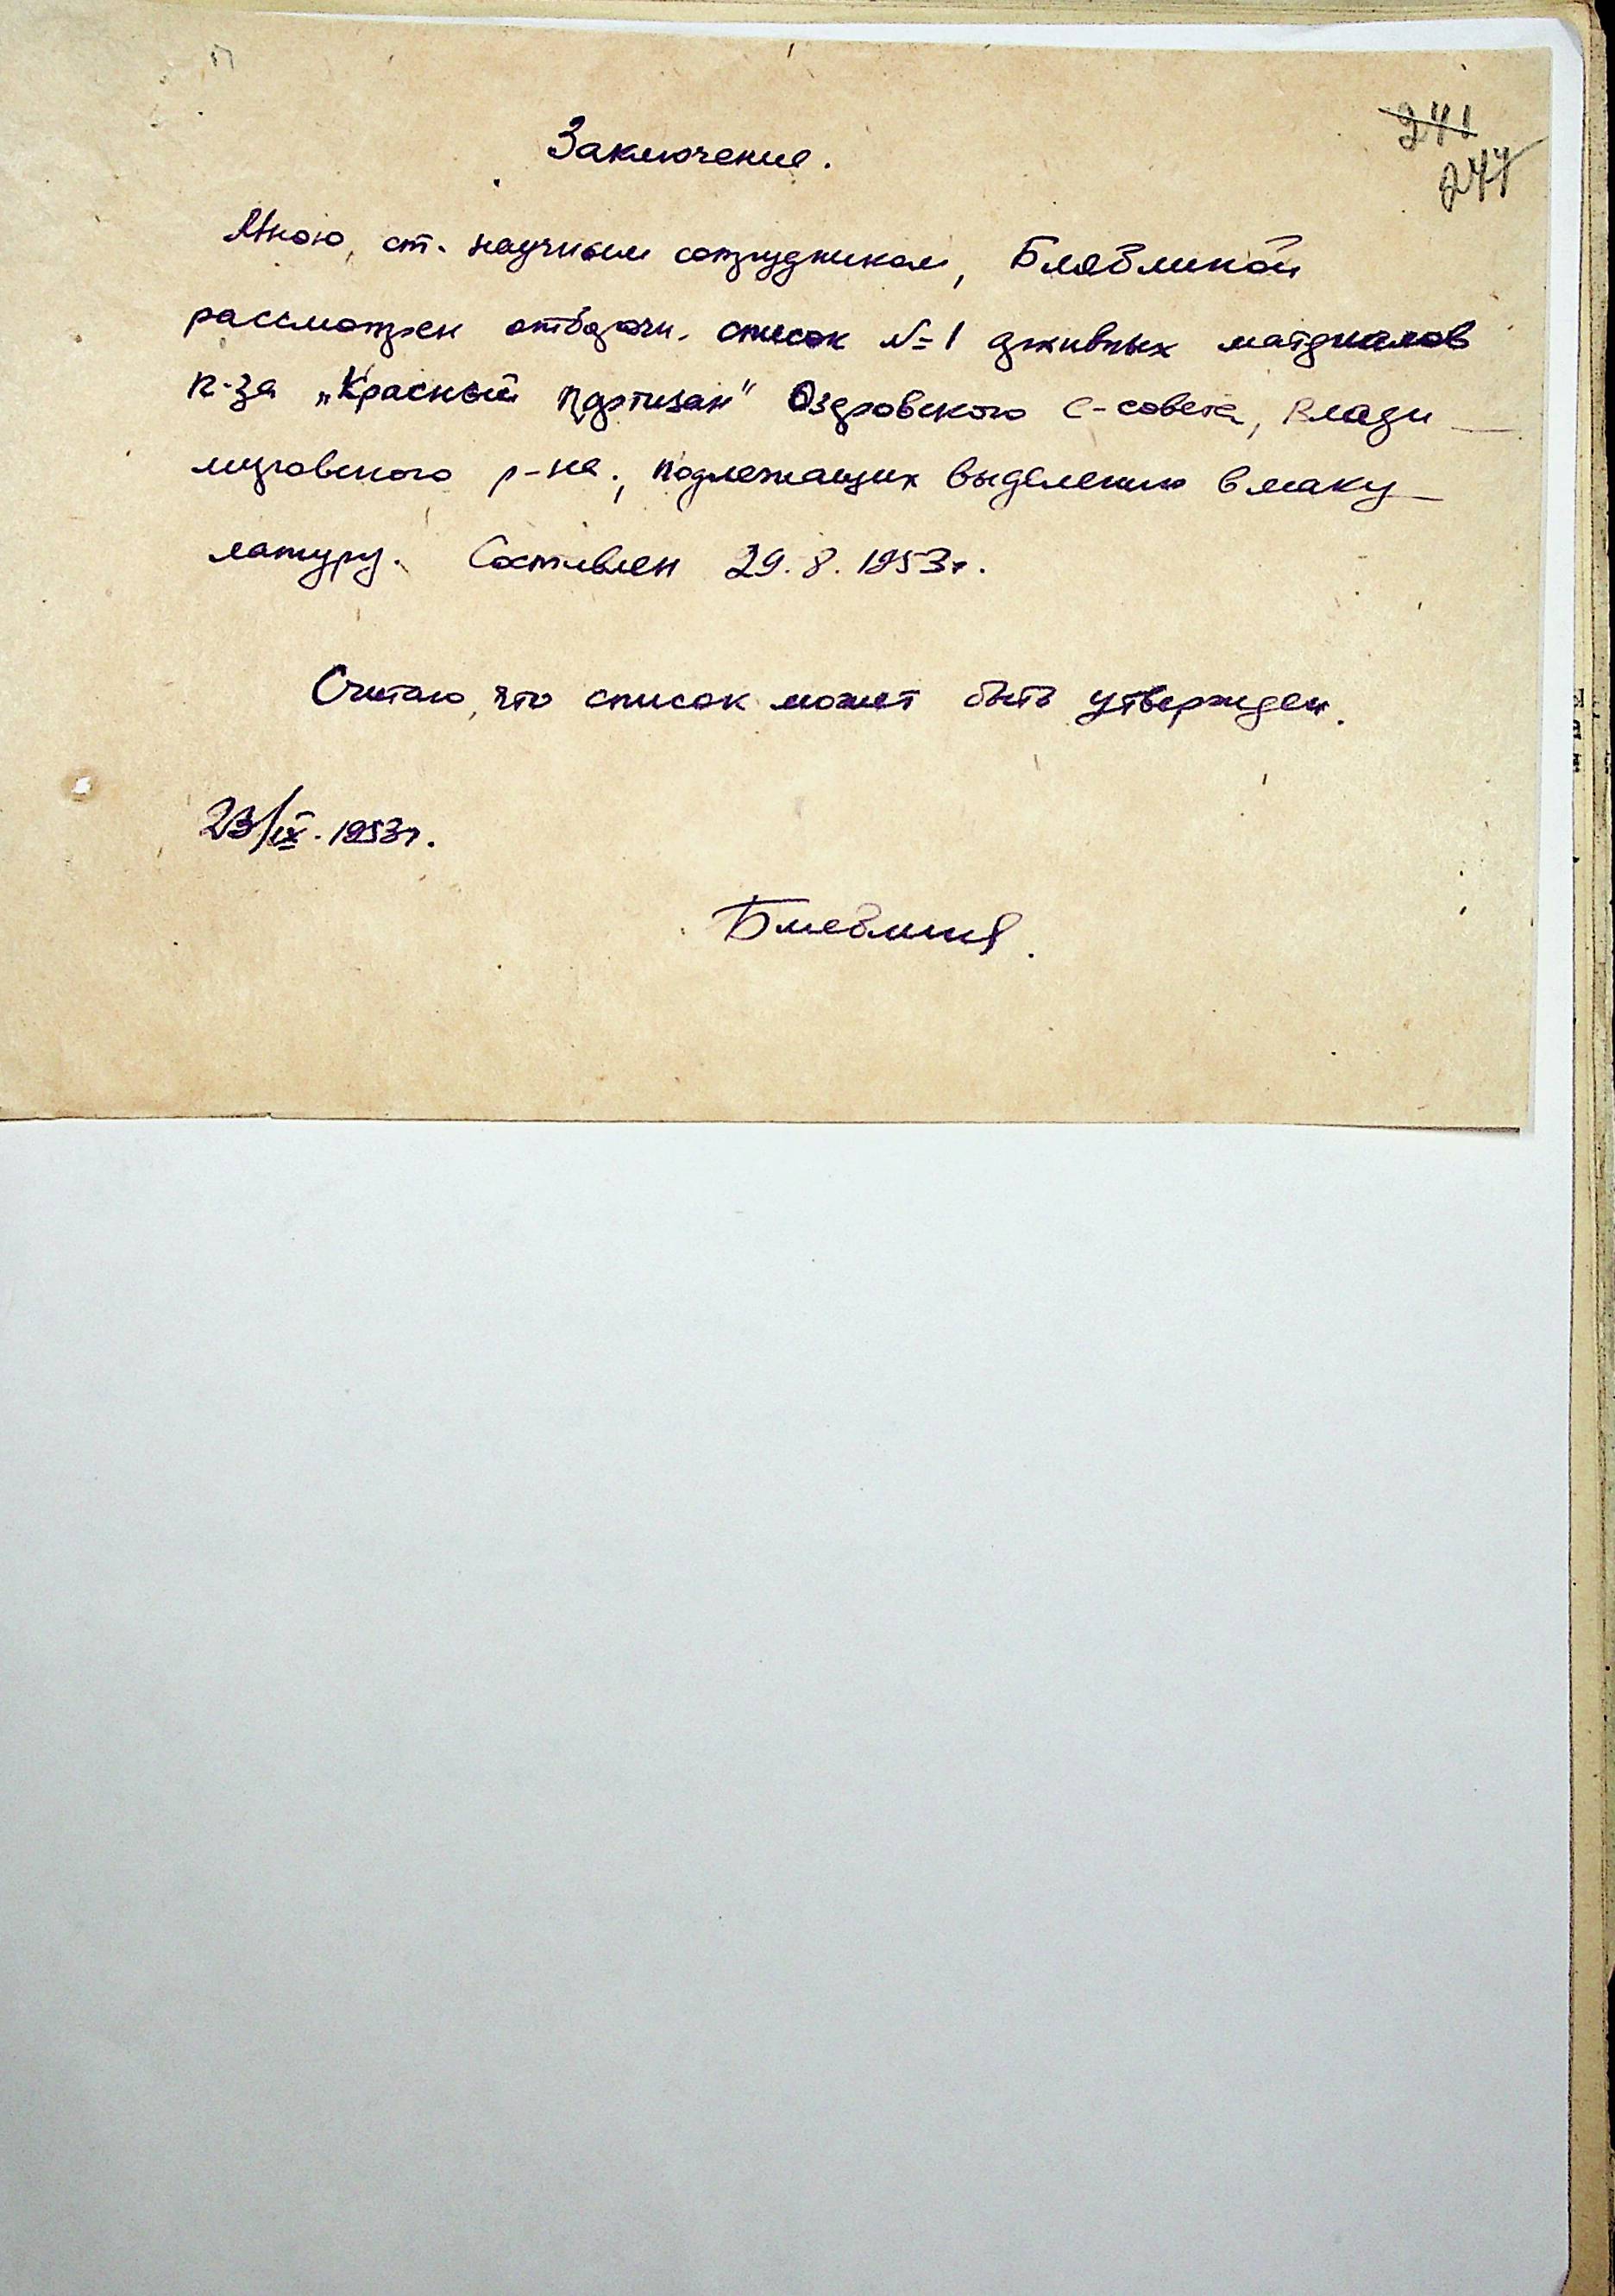 241
277
Заключение.
Мною, ст. научным сотрудником, Бляблиной
рассмотрен отборочн. список №1 архивных материалов
к-за „Красный партизан" Озеровского с-совета, Влади
мировского р-на, подлежащих выделению в маку
латуру. Составлен 29.8.1953г.
Считаю, что список может быть утвержден.
23/IX.1953г.